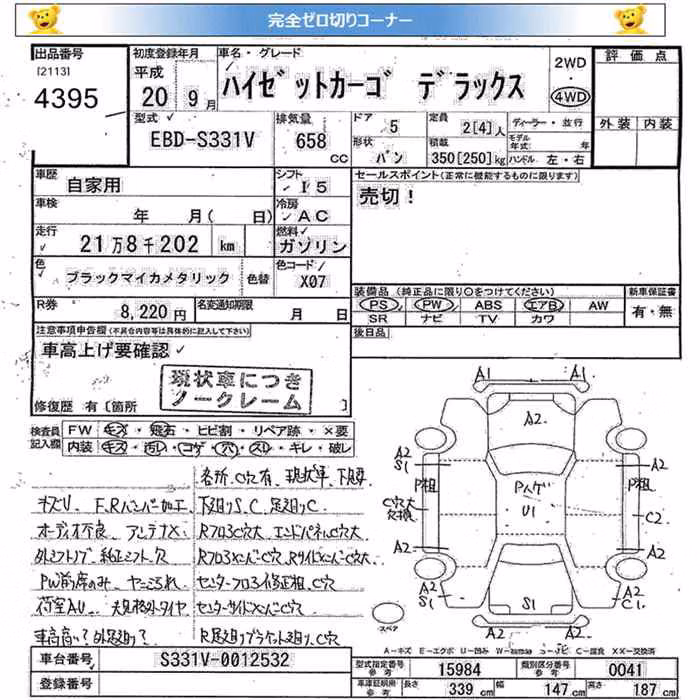 完全ゼロ切りコーナー
出品番号
[2113]
4395
初度登録年月
平成
20年 9月
車名・グレード
ハイゼットカーゴ デラックス
2WD
・
4WD
評価点
外装 内装
型式
EBD-S331V
排気量
658
CC
ドア
5
形状
バン
定員
2[4]人
積載
350[250]kg
ディーラー・並行
モデル
年式: 年
ハンドル 左・右
車歴
自家用
シフト
I5
車検
年 月( 日)
冷房
AC
走行
21万8千202 km
燃料
ガソリン
色
ブラックマイカメタリック
色替
色コード
X07
R券
8,220円
名変通知期限
月 日
セールスポイント(正常に機能するものに限ります)
売切!
装備品(純正品に限り○をつけてください)
新車保証書
PS PW ABS エアB AW
SR ナビ TV カワ
有・無
後日品
注意事項申告欄(不具合内容等は具体的に記入して下さい)
車高上げ要確認
現状車につき
ノークレーム
修復歴 有[箇所 ]
検査員
記入欄
FW キズ・飛石・ヒビ割・リペア跡・×要
内装 キズ・汚レ・コゲ・穴・スレ・キレ・破レ
各所、C穴有、現状車、下見要
キズU F,Rバンパー加工
下廻りS、C 足廻りC
オーディオ不良 アンテナX
RフロアC穴大、エンドパネルC穴大
純正シフト欠
PW前席のみ、ヤニよごれ
センターフロア修正粗、C穴
荷室AU 大規格外タイヤ
センターサイドメンバーC穴
R足廻りブラケット廻り、C穴
A1 A1
A2
A2
S1
P粗
C穴大
欠損
A2
A2
S1
Pハゲ
U1
S1
A2
P粗
C2
A2
A2
C1
A2
スペア
A-キズ E-エクボ U-凹み
C-腐食 XX-交換済
車台番号
S331V-0012532
登録番号
型式指定番号
参考
15984
類別区分番号
参考
0041
車庫証明用
参考
長さ
339 cm
幅
147 cm
高さ
187 cm